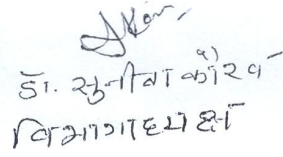 डॉ. सुनीता कौरव
विभागाध्यक्ष